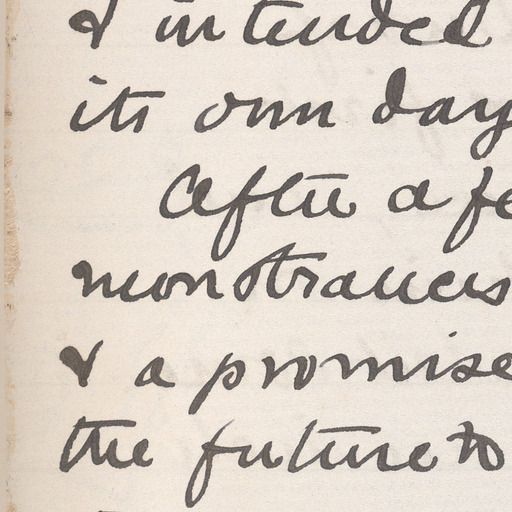 & intended
its own day
After a fe
monstrances
& a promise
the future to